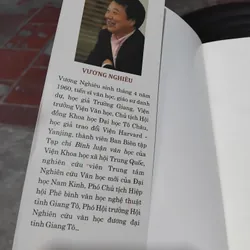 VƯƠNG NGHIÊU
Vương Nghiêu sinh tháng 4 năm
1960, tiến sĩ văn học, giáo sư danh
dự, học giả Trường Giang, Viện
trưởng Viện Văn học, Chủ tịch Hội
đồng Khoa học Đại học Tô Châu,
học giả trao đổi Viện Harvard -
Yanjing, thành viên Ban Biên tập
Tạp chí Bình luận văn học của
Viện Khoa học xã hội Trung Quốc,
nghiên cứu viên Trung tâm
Nghiên cứu Văn học mới của Đại
học Nam Kinh, Phó Chủ tịch Hiệp
hội Phê bình văn học nghệ thuật
tỉnh Giang Tô, Phó Hội trưởng Hội
Nghiên cứu văn học đương đại
tỉnh Giang Tô,..